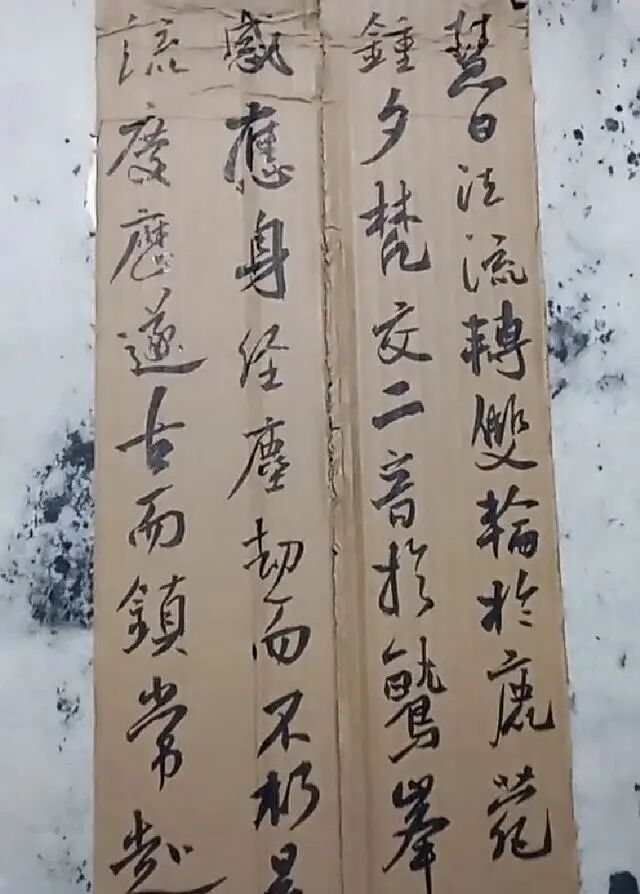 慧日法流轉雙輪於鹿苑
鍾夕梵交二音於鷲峯
感應身経塵劫而不朽
流慶歷遂古而鎮常赴